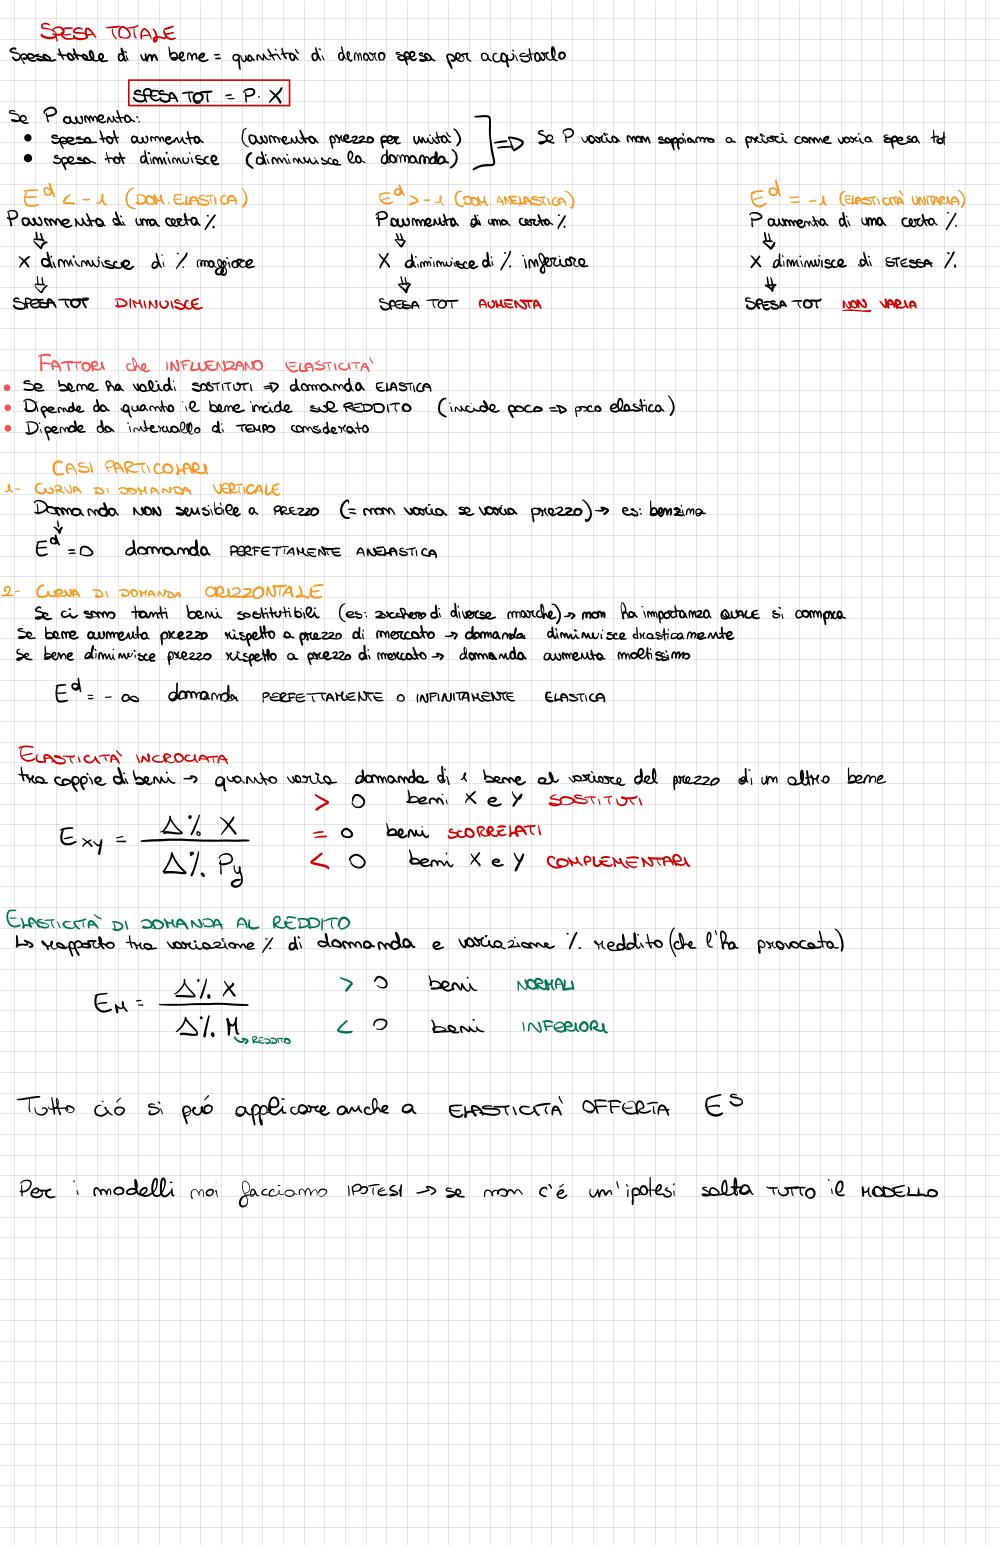 SPESA TOTALE
Spesa totale di un bene = quantità di denaro spesa per acquistarlo
SPESA TOT = P · X
Se P aumenta:
• spesa tot aumenta (aumenta prezzo per unità)
• spesa tot diminuisce (diminuisce la domanda)
⇒ Se P varia non sappiamo a priori come varia spesa tot
E^d < -1 (DOM. ELASTICA)
P aumenta di una certa %
⇓
X diminuisce di % maggiore
⇓
SPESA TOT DIMINUISCE
E^d > -1 (DOM. ANELASTICA)
P aumenta di una certa %
⇓
X diminuisce di % inferiore
⇓
SPESA TOT AUMENTA
E^d = -1 (ELASTICITÀ UNITARIA)
P aumenta di una certa %
⇓
X diminuisce di STESSA %
⇓
SPESA TOT NON VARIA
FATTORI che INFLUENZANO ELASTICITA'
• Se bene ha validi SOSTITUTI ⇒ domanda ELASTICA
• Dipende da quanto il bene incide sul REDDITO (incide poco ⇒ poco elastica)
• Dipende da intervallo di TEMPO considerato
CASI PARTICOLARI
1- CURVA DI DOMANDA VERTICALE
Domanda NON sensibile a PREZZO (= non varia se varia prezzo) → es: benzina
↓
E^d = 0 domanda PERFETTAMENTE ANELASTICA
2- CURVA DI DOMANDA ORIZZONTALE
Se ci sono tanti beni sostitutibili (es: zucchero di diverse marche) → non ha importanza QUALE si compra
Se bene aumenta prezzo rispetto a prezzo di mercato → domanda diminuisce drasticamente
Se bene diminuisce prezzo rispetto a prezzo di mercato → domanda aumenta moltissimo
E^d = - ∞ domanda PERFETTAMENTE O INFINITAMENTE ELASTICA
ELASTICITÀ INCROCIATA
tra coppie di beni → quanto varia domanda di 1 bene al variare del prezzo di un altro bene
E_xy = Δ% X / Δ% Py
> 0 beni X e Y SOSTITUTI
= 0 beni SCORRELATI
< 0 beni X e Y COMPLEMENTARI
ELASTICITÀ DI DOMANDA AL REDDITO
↳ rapporto tra variazione % di domanda e variazione % reddito (che l'ha provocata)
E_M = Δ% X / Δ% M
↳ REDDITO
> 0 beni NORMALI
< 0 beni INFERIORI
Tutto ció si puó applicare anche a ELASTICITÀ OFFERTA E^S
Per i modelli noi facciamo IPOTESI → se non c'é un'ipotesi salta TUTTO il MODELLO